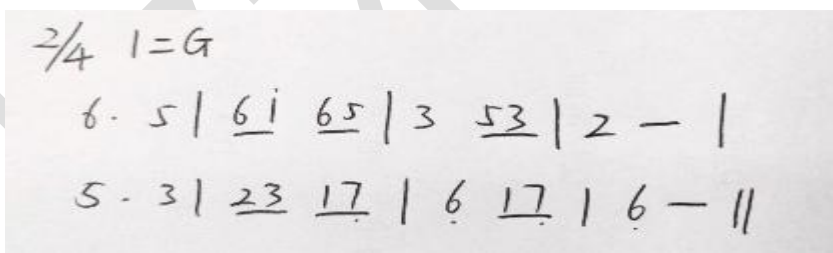 2/4 1=G
6· 5 | 6i 65 | 3 53 | 2 — |
5· 3 | 23 17̣ | 6̣ 17̣ | 6̣ — ||